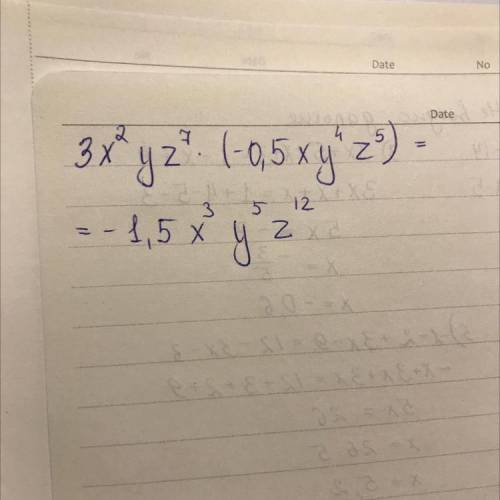 Date No
Date
3x² yz⁷ · (-0,5xy⁴z⁵) =
= -1,5x³ y⁵ z¹²